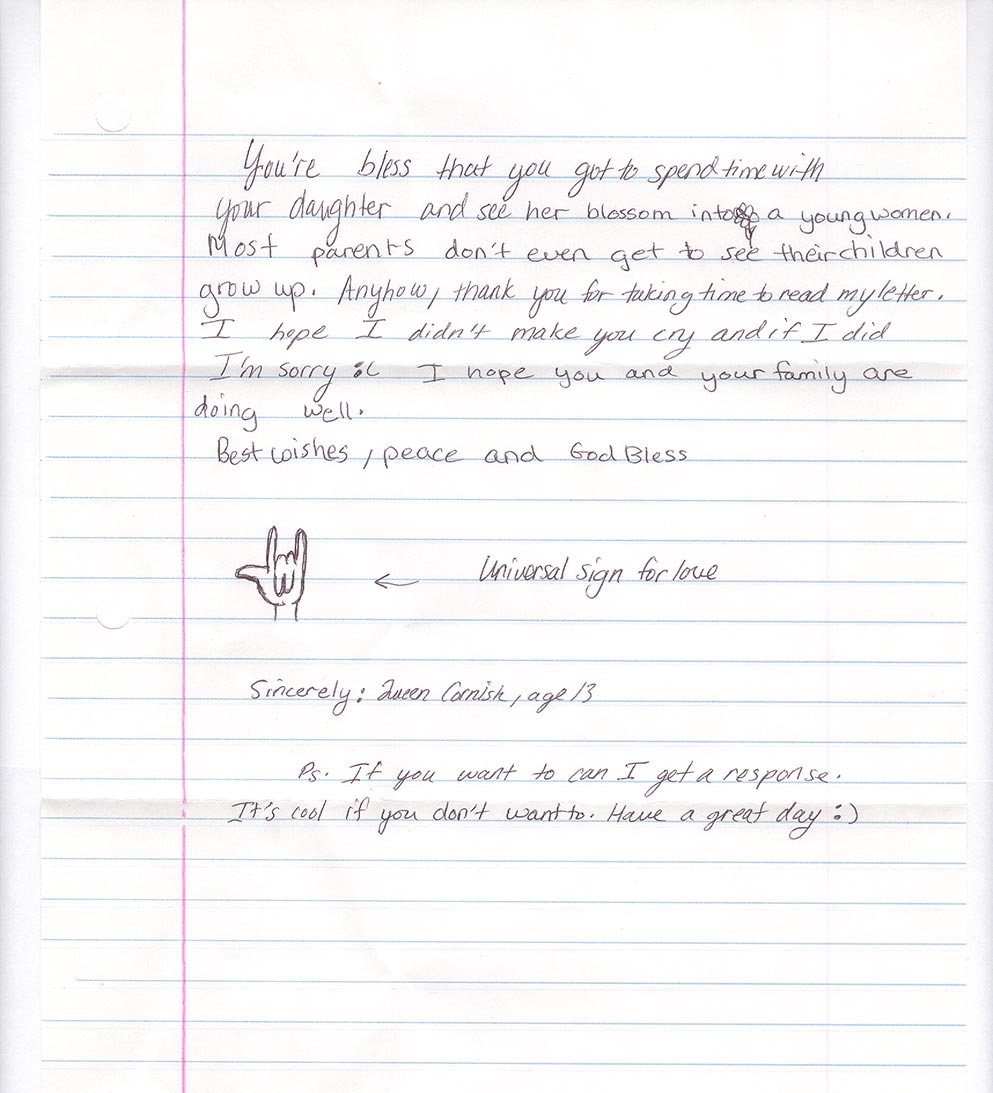 You're bless that you got to spend time with
your daughter and see her blossom into a young women.
Most parents don't even get to see their children
grow up. Anyhow, thank you for taking time to read my letter.
I hope I didn't make you cry and if I did
I'm sorry :( I hope you and your family are
doing well.
Best wishes, peace and God Bless
← Universal sign for love
Sincerely: Queen Cornish, age 13
Ps. If you want to can I get a response.
It's cool if you don't want to. Have a great day :)